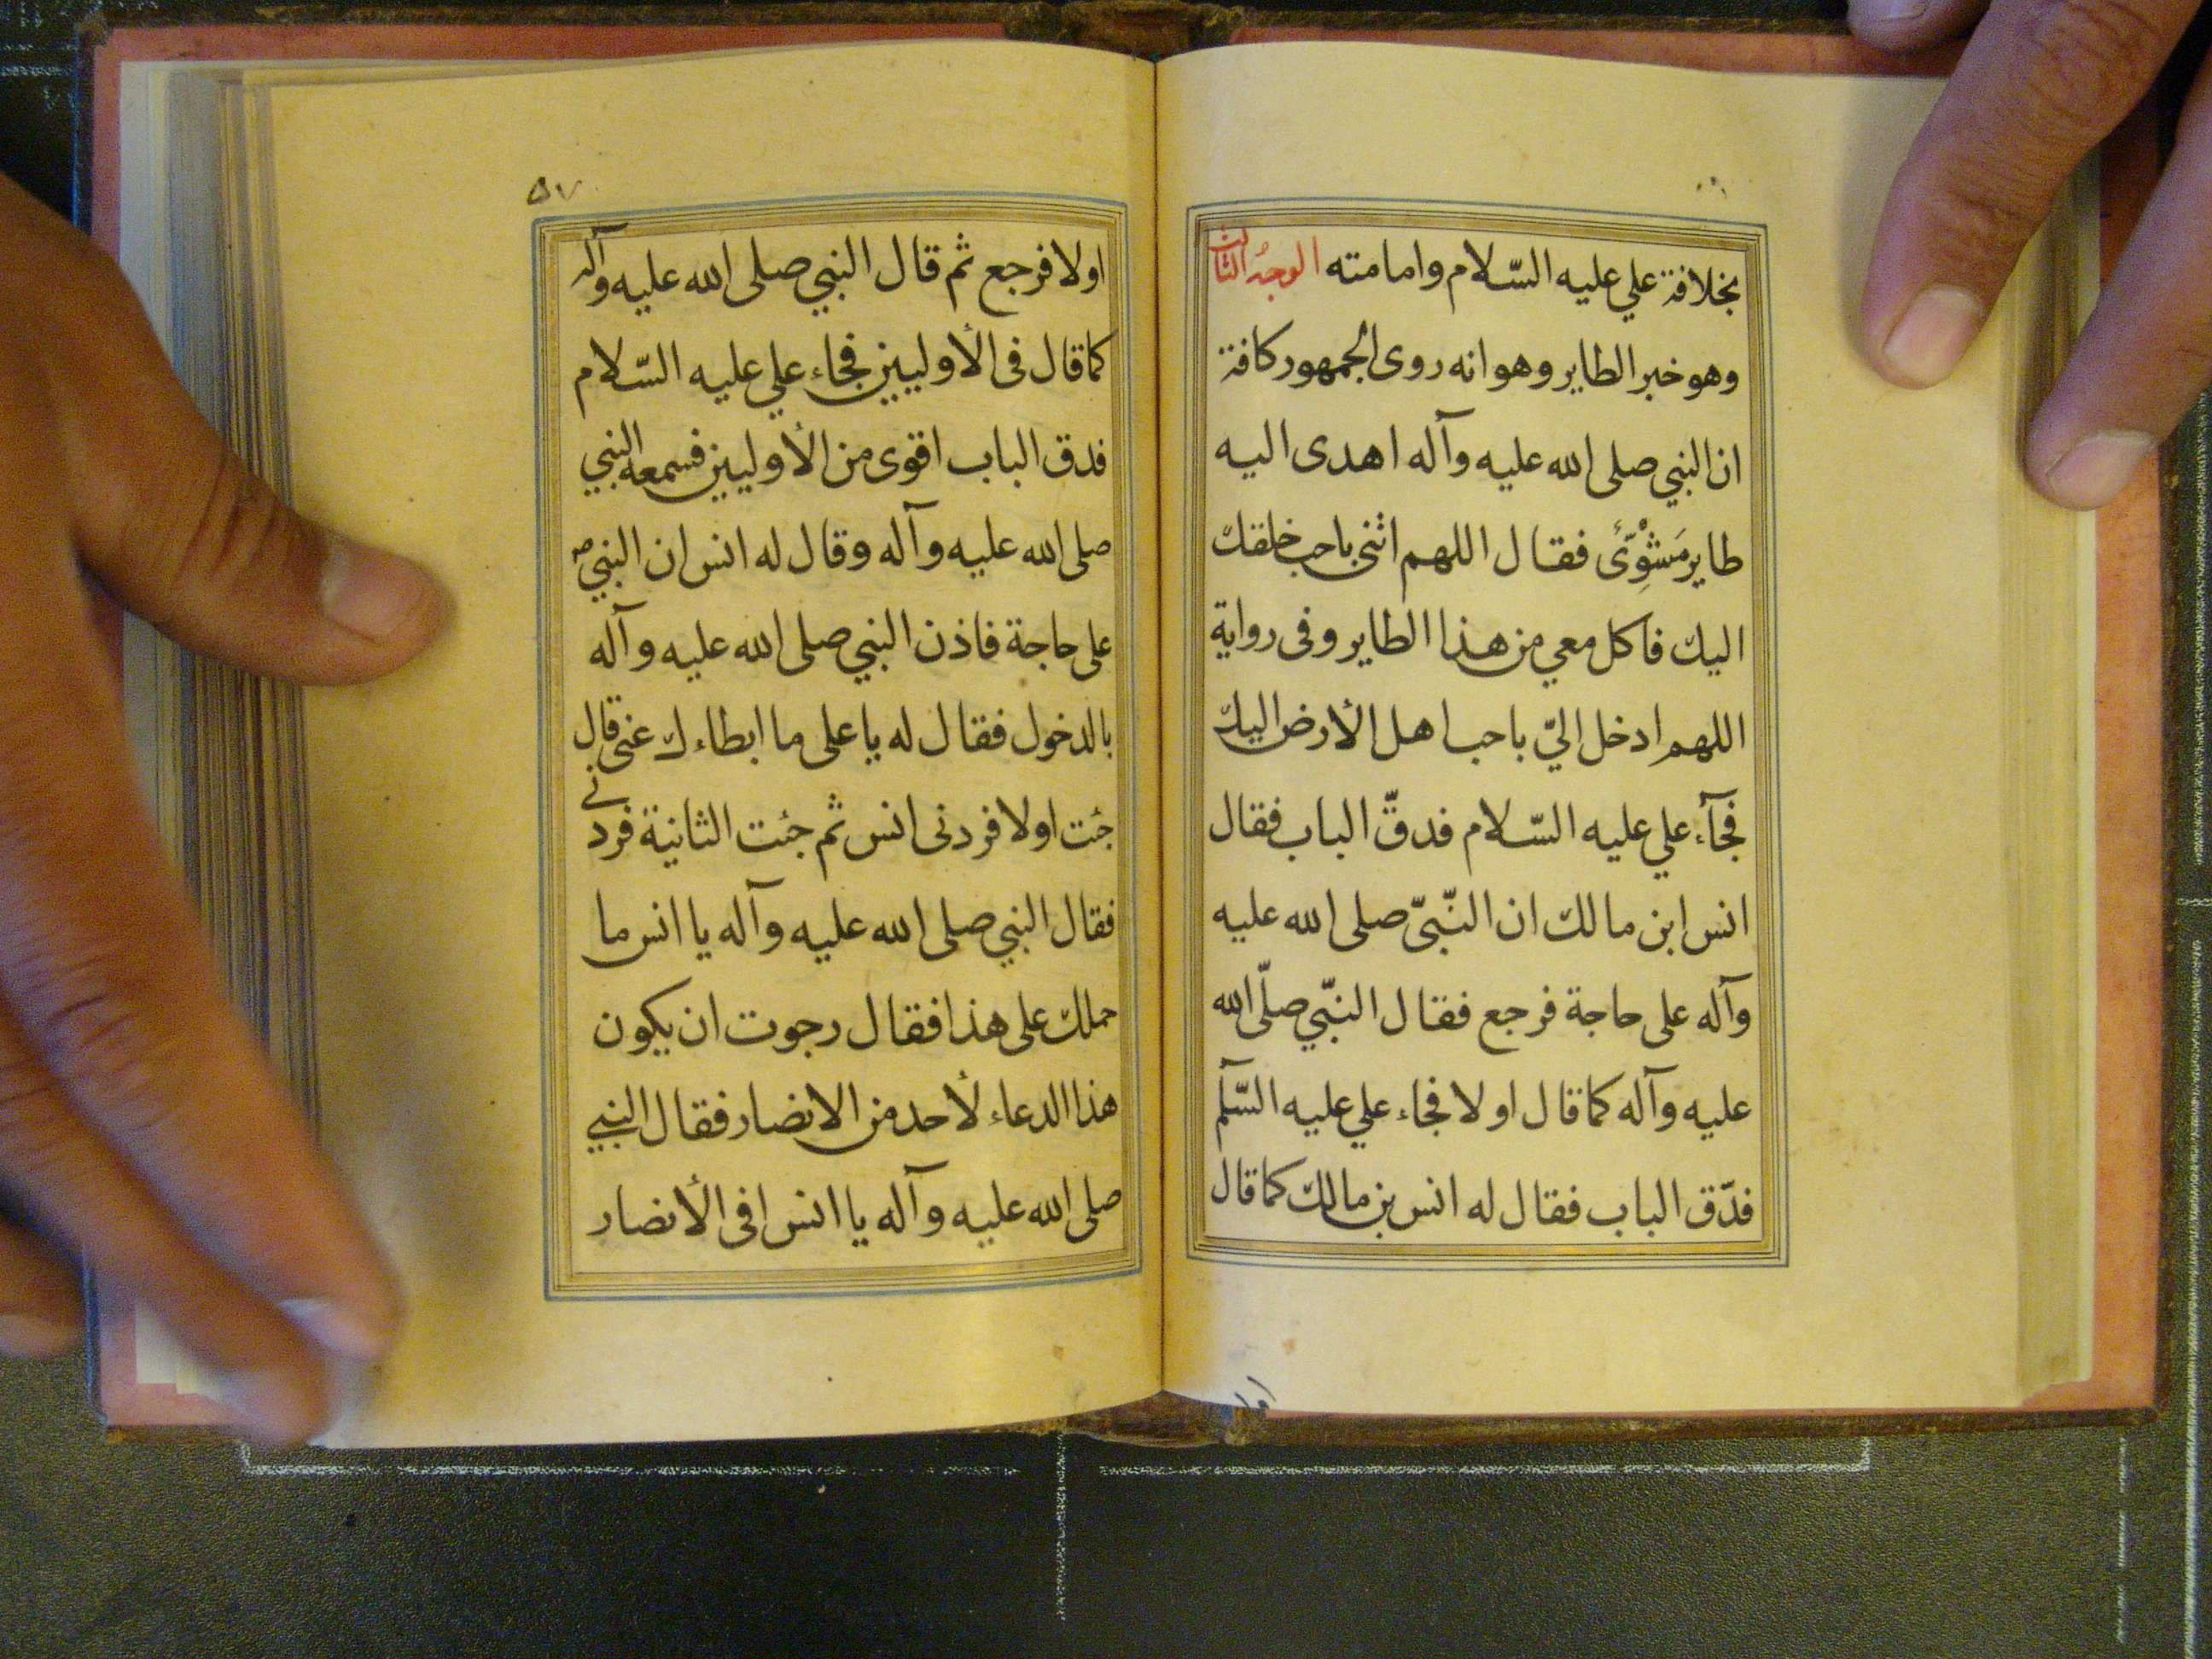 بخلافة علي عليه السّلام وامامته الوجهُ الثالث
وهو خبر الطاير وهو انه روى الجمهور كافة
ان النبي صلى الله عليه وآله اهدى اليه
طاير مَشْوِىّ فقال اللهم ائتنى باحب خلقك
اليك فاكل معي من هذا الطاير وفى رواية
اللهم ادخل اليّ باحب اهل الأرض اليك
فجآء علي عليه السّلام فدقّ الباب فقال
انس ابن مالك ان النّبىّ صلى الله عليه
وآله على حاجة فرجع فقال النبّي صلّى الله
عليه وآله كما قال اولا فجاء علي عليه السّلم
فدّق الباب فقال له انس بن مالك كما قال
اولا
٥٧
اولا فرجع ثم قال النبي صلى الله عليه وآله
كما قال فى الأوليين فجاء علي عليه السّلام
فدق الباب اقوى من الأوليين فسمعه النبي
صلى الله عليه وآله وقال له انس ان النبي ص
على حاجة فاذن النبي صلى الله عليه وآله
بالدخول فقال له يا على ما ابطاءك عنى قال
جئت اولا فردنى انس ثم جئت الثانية فردنى
فقال النبي صلى الله عليه وآله يا انس ما
حملك على هذا فقال رجوت ان يكون
هذا الدعاء لأحد من الانصار فقال النبي
صلى الله عليه وآله يا انس افى الأنصار